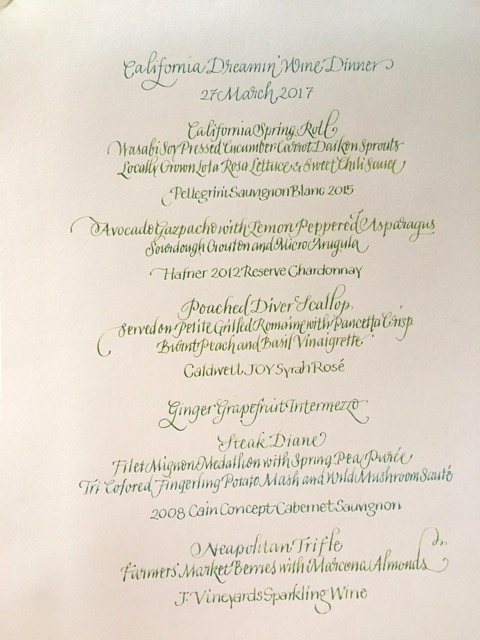 California Dreamin' Wine Dinner
27 March, 2017
California Spring Roll
Wasabi Soy Pressed Cucumber Carrot Daikon Sprouts
Locally Grown Lola Rosa Lettuce & Sweet Chili Sauce
Pellegrini Sauvignon Blanc 2015
Avocado Gazpacho with Lemon Peppered Asparagus
Sourdough Crouton and Micro Arugula
Hafner 2012 Reserve Chardonnay
Poached Diver Scallop
Served on Petite Grilled Romaine with Pancetta Crisp
Burnt Peach and Basil Vinaigrette
Caldwell JOY Syrah Rosé
Ginger Grapefruit Intermezzo
Steak Diane
Filet Mignon Medallion with Spring Pea Purée
Tri Colored Fingerling Potato Mash and Wild Mushroom Sauté
2008 Cain Concept Cabernet Sauvignon
Neapolitan Trifle
Farmers' Market Berries with Marcona Almonds
J. Vineyards Sparkling Wine